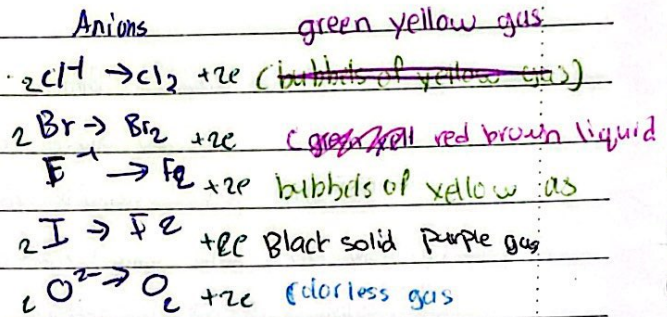 Anions green yellow gas
2cl⁻¹ → cl₂ +2e (bubbels of yellow gas)
2 Br → Br₂ +2e ( red brown liquid
F⁻¹ → F₂ +2e bubbels of yellow as
2 I → I 2 +2e Black solid purple gas
2 O²⁻ → O₂ +2e Colorless gas